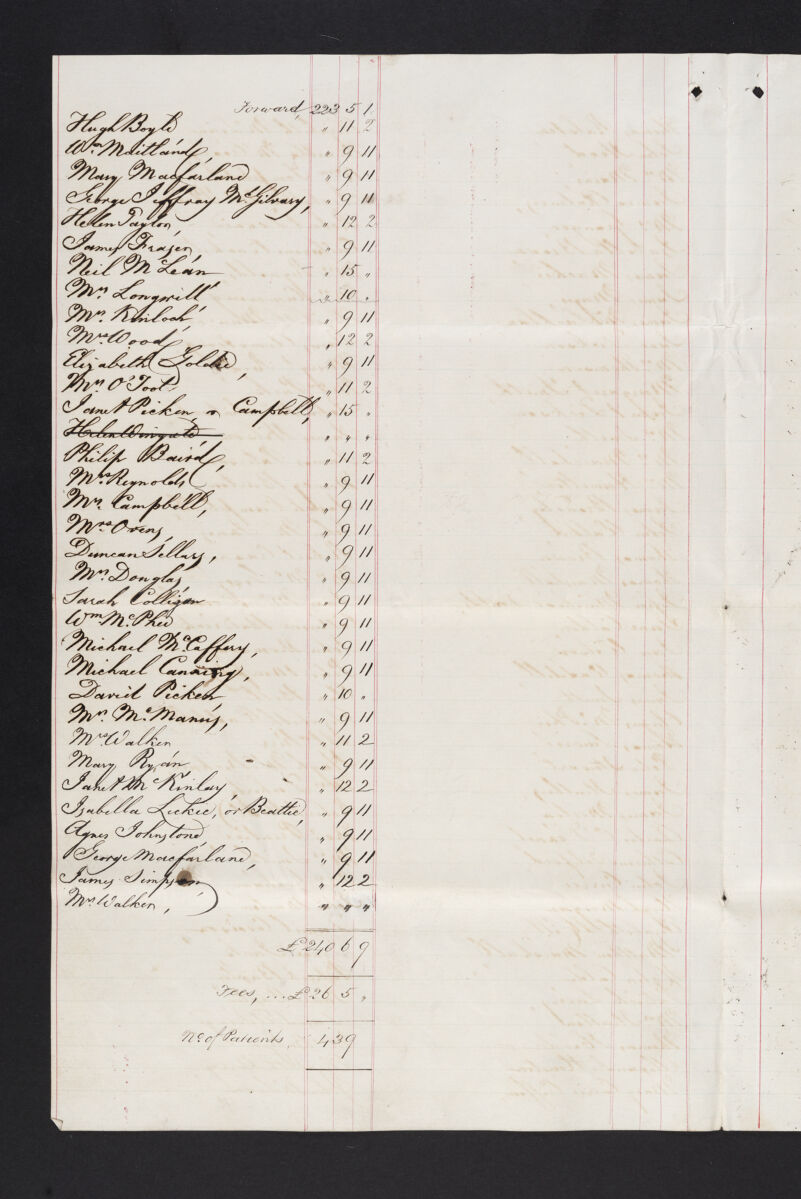 Forward, 223 5 1
Hugh Boyle " 11 2
Wm Maitland, " 9 11
Mary Macfarland " 9 11
George Jeffray McGilvary, " 9 11
Helen Taylor, " 12 2
James Frazer " 9 11
Neil McLean " 15 "
Mrs Longwill " 10 "
Mrs Kinloch " 9 11
Mrs Wood, " 12 2
Elizabeth Goldie, " 9 11
Mrs O'Tool " 11 2
Janet Picken or Campbell, " 15 "
Helen Wingate " " "
Philip Baird, " 11 2
Mrs Reynolds " 9 11
Mrs Campbell, " 9 11
Mrs Ovens, " 9 11
Duncan Sellars, " 9 11
Mrs Douglas, " 9 11
Sarah Colligan " 9 11
Wm McPhee " 9 11
Michael McCaffery, " 9 11
Michael Canning, " 9 11
David Picken " 10 "
Mrs McManus, " 9 11
Mrs Walker " 11 2
Mary Ryan " 9 11
Janet McKinlay, " 12 2
Isabella Leckie, or Beattie, " 9 11
Agnes Johnstone, " 9 11
George Macfarland, " 9 11
James Simpson, " 12 2
Mrs Walker, " " "
£240 6 9
Fees, ... £26 5 "
No of Patients, 439